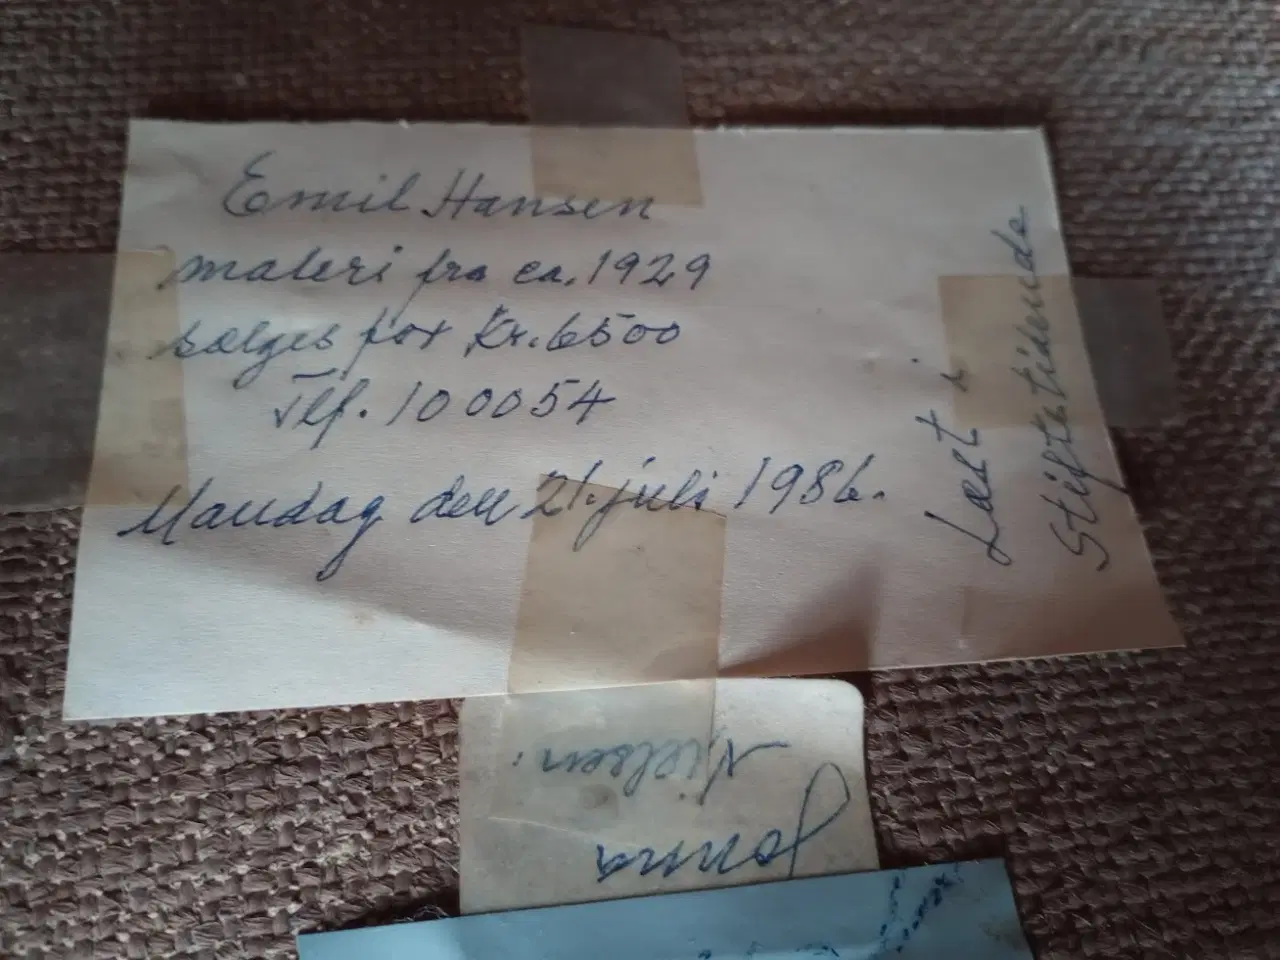 Emil Hansen
maleri fra ca. 1929
sælges for kr. 6500
Tlf. 100054
Mandag den 21. juli 1986.
Læst i
Stiftstidende
Nielsen.